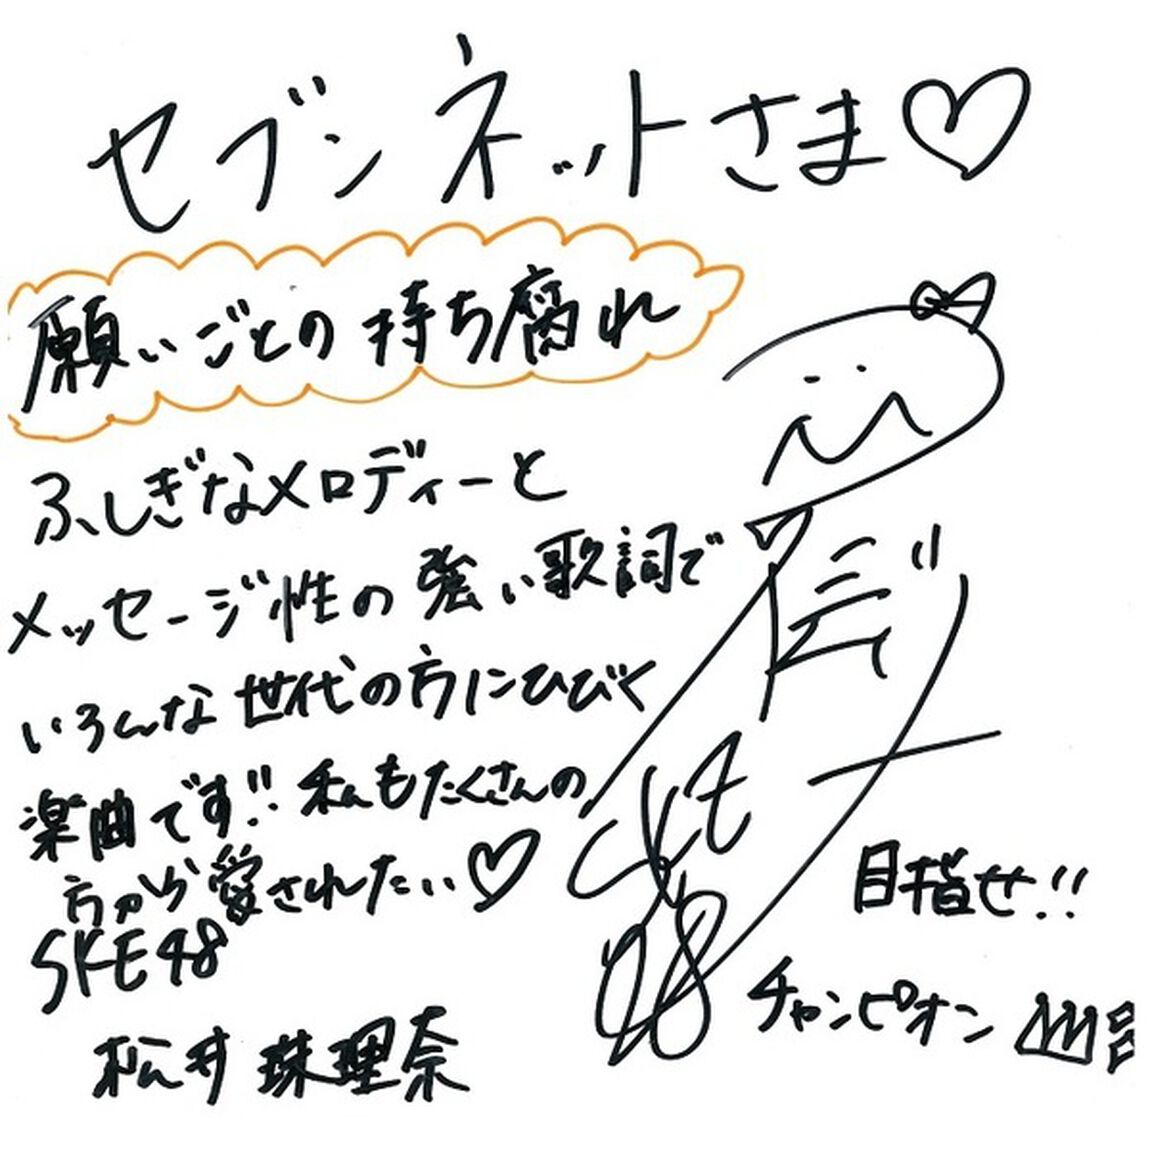 セブンネットさま♡
願いごとの持ち腐れ
ふしぎなメロディーと
メッセージ性の強い歌詞で
いろんな世代の方にひびく
楽曲です!! 私もたくさんの
方から愛されたい♡
SKE48
松井珠理奈
目指せ!!
チャンピオン